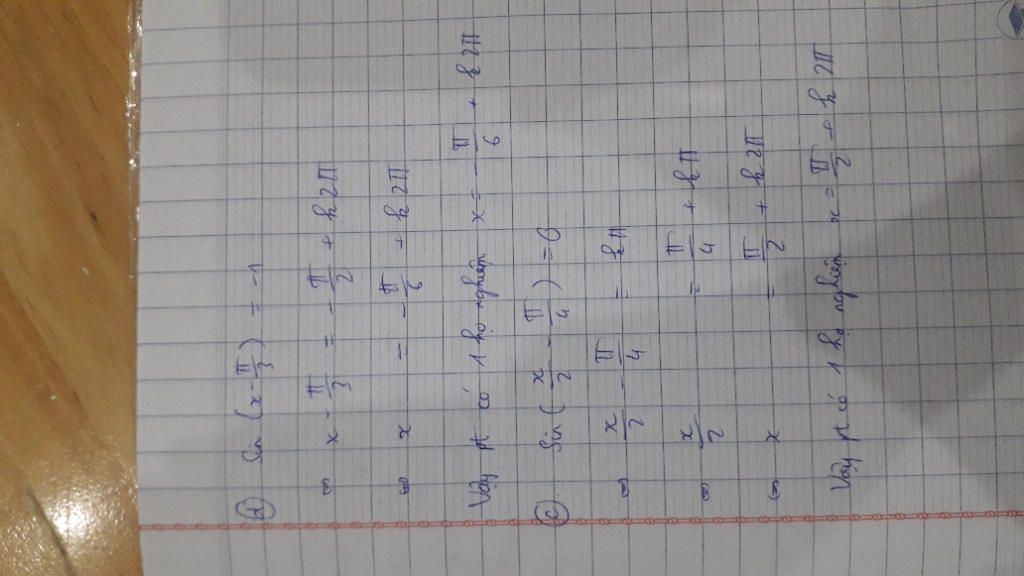 b) Sin (x - π/3) = -1
⇔ x - π/3 = - π/2 + k2π
⇔ x = - π/6 + k2π
Vậy pt có 1 họ nghiệm x = - π/6 + k2π
c). Sin ( x/2 - π/4 ) = 0
⇔ x/2 - π/4 = kπ
⇔ x/2 = π/4 + kπ
⇔ x = π/2 + k2π
Vậy pt có 1 họ nghiệm x = π/2 + k2π